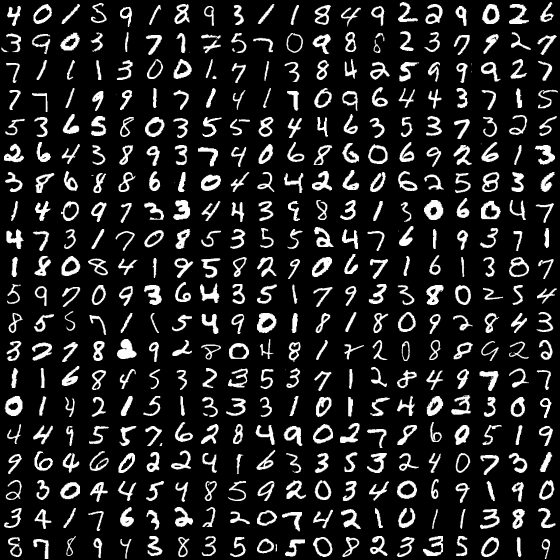 4 0 1 5 9 1 8 9 3 1 1 8 4 9 2 2 9 0 2 6
3 9 0 3 1 7 1 7 5 7 0 9 8 8 2 3 7 9 2 7
7 1 1 1 3 0 0 1 7 1 3 8 4 2 5 9 9 9 2 7
7 7 1 9 9 1 7 1 4 1 7 0 9 6 4 4 3 7 1 5
5 3 6 5 8 0 3 5 5 8 4 4 6 3 5 3 7 3 2 5
2 6 4 3 8 9 3 7 4 0 6 8 6 0 6 9 2 6 1 3
3 8 6 8 8 6 1 0 4 2 4 2 6 0 6 2 5 8 3 6
1 4 0 9 7 3 3 4 4 3 9 8 3 1 3 0 6 0 4 7
4 7 3 1 7 0 8 5 3 5 5 2 4 7 6 1 9 3 7 1
1 8 0 8 4 1 9 5 8 2 9 0 6 7 1 6 1 3 8 7
5 9 7 0 9 3 6 4 3 5 1 7 9 3 3 8 0 2 5 4
8 5 5 7 1 1 5 4 9 0 1 8 1 8 0 9 2 8 4 3
3 2 7 8 2 9 2 8 0 4 8 1 7 2 0 8 8 9 2 2
1 1 6 8 4 5 3 2 3 5 3 7 1 2 8 4 9 7 2 7
0 1 4 2 1 5 1 3 3 3 1 0 1 5 4 0 3 3 0 9
4 4 9 5 5 7 6 2 8 4 9 0 2 7 8 6 0 5 1 9
9 6 4 6 0 2 2 9 1 6 3 3 5 3 2 4 0 7 3 1
2 3 0 4 4 5 4 8 5 9 2 0 3 4 0 6 9 1 9 0
3 4 1 7 6 3 2 2 2 0 7 4 2 1 0 1 1 3 8 2
8 7 8 9 4 3 8 3 5 0 5 0 8 2 3 3 5 0 1 9